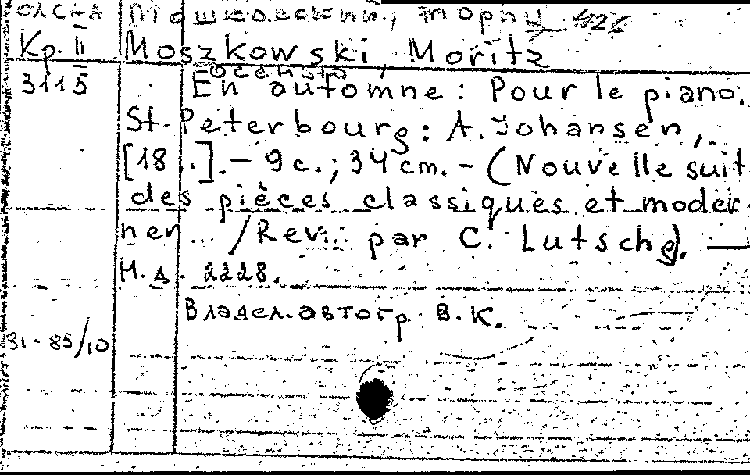 Мошковский, Мориц
Кр. II Moszkowski, Moritz
осенью
3115 En automne: Pour le piano.
St. Peterbourg: A. Johansen,
[18..]. – 9 с.; 34 cm. – (Nouvelle suit
des pièces classiques et moder
ner /Rev. par C. Lutsche). —
Н.д. 2228.
Владел. автогр. В.К.
31-85/10